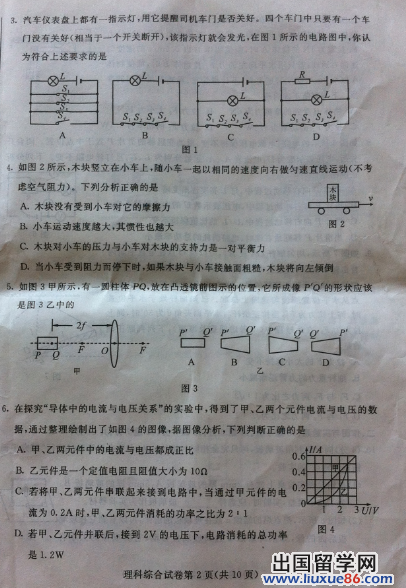 3. 汽车仪表盘上都有一指示灯,用它提醒司机车门是否关好。四个车门中只要有一个车
门没有关好(相当于一个开关断开),该指示灯就会发光,在图1所示的电路图中,你认
为符合上述要求的是
L L L R L
S₁ S₂ S₃ S₄ S₁ S₂ S₃ S₄ S₁ S₂ S₃ S₄ S₁ S₂ S₃ S₄
A B C D
图1
4. 如图2所示,木块竖立在小车上,随小车一起以相同的速度向右做匀速直线运动(不考
虑空气阻力)。下列分析正确的是
A. 木块没有受到小车对它的摩擦力
B. 小车运动速度越大,其惯性也越大
C. 木块对小车的压力与小车对木块的支持力是一对平衡力
D. 当小车受到阻力而停下时,如果木块与小车接触面粗糙,木块将向左倾倒
木块
v
图2
5. 如图3甲所示,有一圆柱体PQ,放在凸透镜前示的位置,它所成像P′Q′的形状应该
是图3乙中的
2f
P Q F O F
甲
P′ Q′ P′ Q′ Q′ P′ Q′ P′
A B C D
乙
图3
6. 在探究“导体中的电流与电压关系”的实验中,得到了甲、乙两个元件电流与电压的数
据,通过整理绘制出了如图4的图像,据图像分析,下列判断正确的是
A. 甲、乙两元件中的电流与电压都成正比
B. 乙元件是一个定值电阻且阻值大小为10Ω
C. 若将甲、乙两元件串联起来接到电路中,当通过甲元件的电
流为0.2A时,甲、乙两元件消耗的功率之比为2:1
D. 若甲、乙元件并联后,接到2V的电压下,电路消耗的总功率
是1.2W
I/A
0.6
0.4
0.2
0 1 2 3 U/V
甲
乙
图4
理科综合试卷第2页(共10页)
出国留学网
www.liuxue86.com